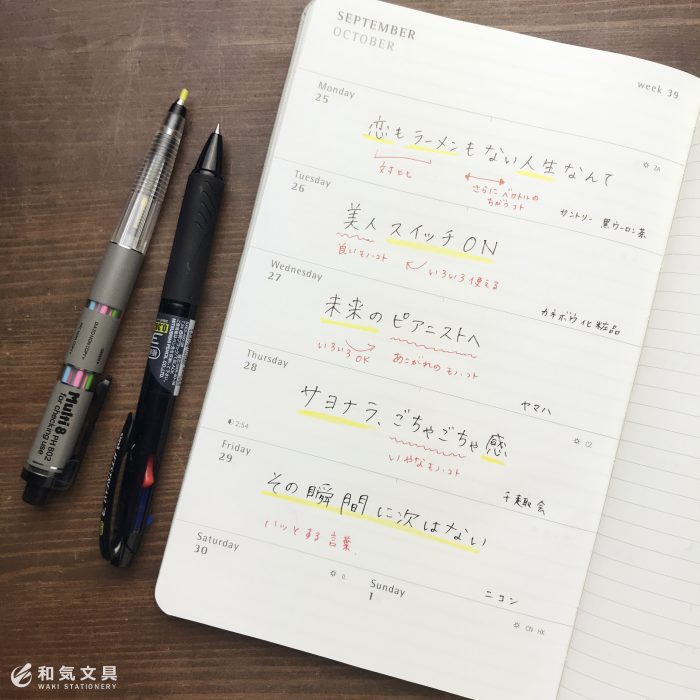 SEPTEMBER
OCTOBER
week 39
Monday
25
恋もラーメンもない人生なんて
対比
さらにベクトルの
ちがうコト
サントリー 黒ウーロン茶
Tuesday
26
美人スイッチON
良いモノ・コト
いろいろ使える
カネボウ化粧品
Wednesday
27
未来のピアニストへ
いろいろOK
あこがれのモノ・コト
ヤマハ
Thursday
28
2:54
CZ
サヨナラ、ごちゃごちゃ感
いやなモノ・コト
千趣会
Friday
29
その瞬間に次はない
ハッとする言葉
ニコン
Saturday
30
Sunday
1
CN・HK
Multi 8 PH 802
for checking use
和気文具
WAKI STATIONERY